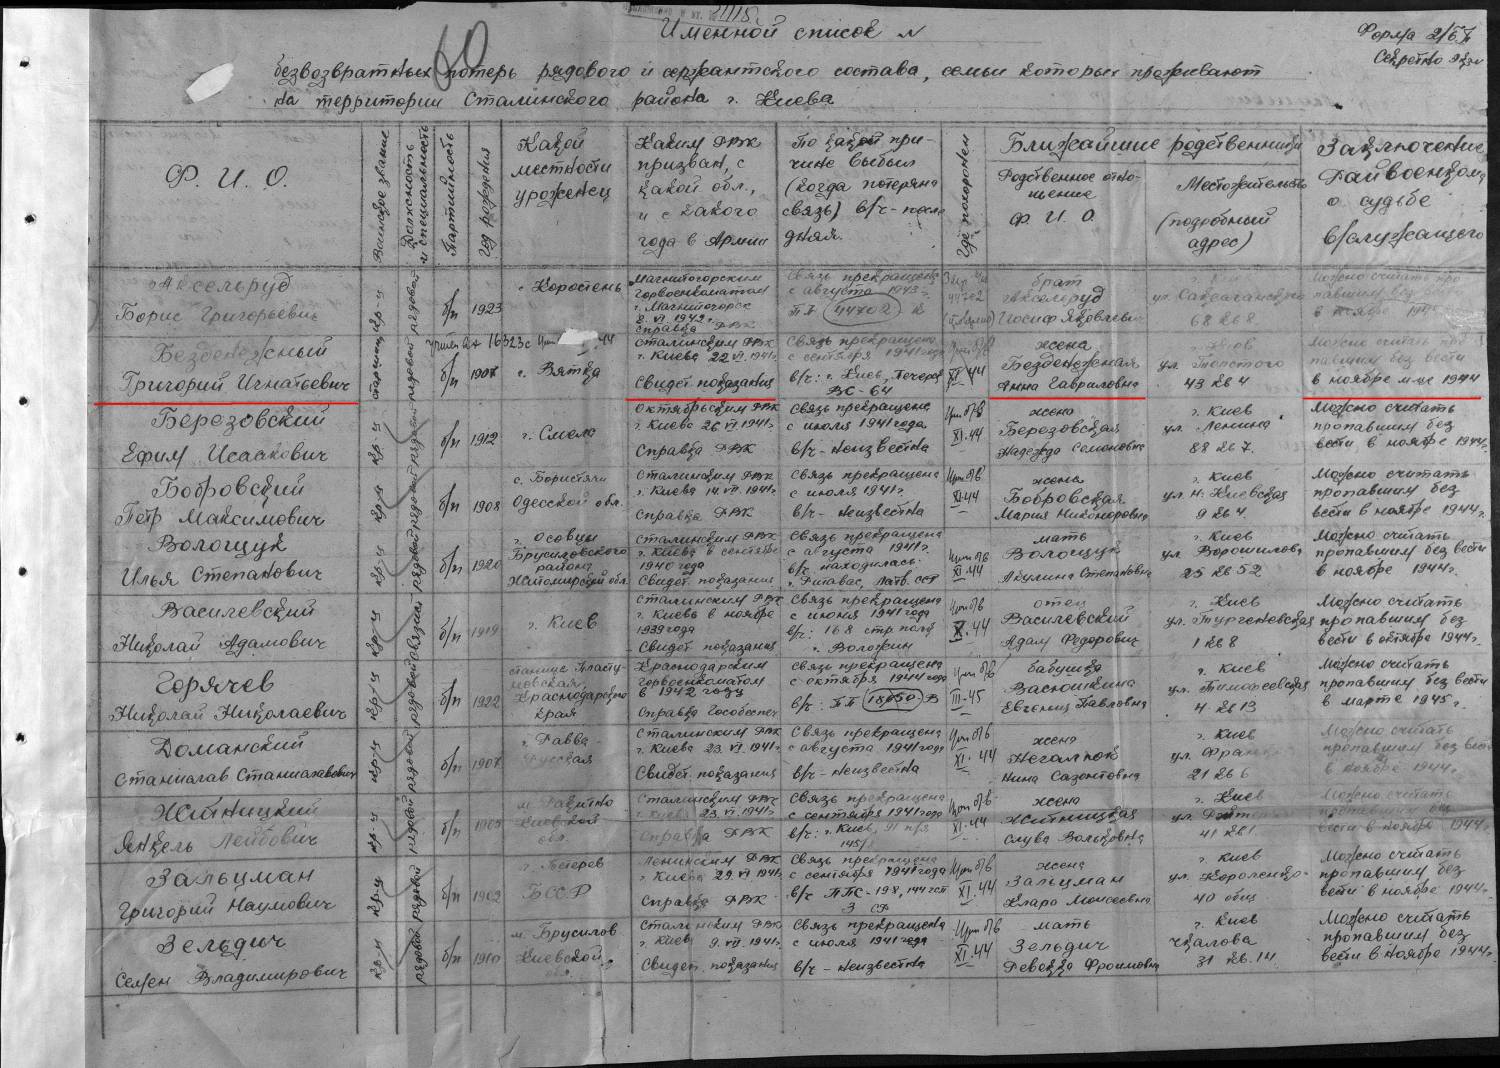 Именной список №
Форма 2/БП
Секретно
60
безвозвратных потерь рядового и сержантского состава, семьи которых проживают
на территории Сталинского района г. Киева
Ф. И. О.
Воинское звание
Должность и специальность
Партийность
Год рождения
Какой местности уроженец
Каким РВК призван, с какой обл., и с какого года в Армии
По какой причине выбыл (когда потеряна связь) в/ч - последняя.
Где похоронен
Ближайшие родственники
Родственное отношение Ф. И. О.
Местожительство (подробный адрес)
Заключение Райвоенкома о судьбе в/служащего
Аксельруд Борис Григорьевич
кр-ц
рядовой
б/п
1923
г. Коростень
Магнитогорским горвоенкоматом г. Магнитогорск 8. VI 1942г. справка РВК
Связь прекращена с августа 1943г. ПП 44702
брат Аксельруд Иосиф Яковлевич
г. Киев ул. Саксаганского 68 кв 8
Можно считать пропавшим без вести в ноябре 1944
Безденежный Григорий Игнатьевич
рядовой
б/п
1907
г. Вятка
Сталинским РВК г. Киева 22 VI 1941г. Свидет. показания
Связь прекращена с сентября 1941года в/ч: г. Киев, Печерск ВС-64
XI 44
жена Безденежная Анна Гавриловна
г. Киев ул. Толстого 43 кв 4
Можно считать пропавшим без вести в ноябре м-це 1944
Березовский Ефим Исаакович
кр-ц
рядовой
б/п
1912
г. Смела
Октябрьским РВК г. Киева 26 VI 1941г. Справка РВК
Связь прекращена с июля 1941года в/ч - неизвестна
XI.44
жена Березовская Надежда Семеновна
г. Киев ул. Ленина 88 кв 7.
Можно считать пропавшим без вести в ноябре 1944г.
Бобровский Петр Максимович
кр-ц
рядовой
б/п
1908
Одесской обл.
Сталинским РВК г. Киева 14. VII 1941г. Справка РВК
Связь прекращена с июля 1941г. в/ч - неизвестна
XI.44
жена Бобровская Мария Никоноровна
г. Киев ул. Н. Киевская 9 кв 4
Можно считать пропавшим без вести в ноябре 1944г.
Волощук Илья Степанович
кр-ц
рядовой
б/п
1920
г. Осовцы Брусиловского района Житомирской обл.
Сталинским РВК г. Киева в сентябре 1940 года Свидет. показания
Связь прекращена с августа 1941г. в/ч находилась: г. Ритавас, Латв. ССР
XI.44
мать Волощук Акулина Степановна
г. Киев ул. Ворошилова 25 кв 52
Можно считать пропавшим без вести в ноябре 1944г.
Василевский Николай Адамович
кр-ц
связист
б/п
1919
г. Киев
Сталинским РВК г. Киева в ноябре 1939 года Свидет. показания
Связь прекращена с июня 1941 года в/ч: 168 стр. полк г. Воложин
X.44
отец Василевский Адам Федорович
г. Киев ул. Тургеневская 1 кв 8
Можно считать пропавшим без вести в октябре 1944г.
Горячев Николай Николаевич
кр-ц
рядовой
б/п
1922
станица Пластуновская, Краснодарского края
Краснодарским горвоенкоматом в 1942 году Справка Гособеспеч
Связь прекращена с октября 1944 года в/ч: ПП 18650 В
III-45
бабушка Васюткина Евгения Павловна
г. Киев ул. Тимофеевская 4 кв 13
Можно считать пропавшим без вести в марте 1945г.
Доманский Станислав Станиславович
кр-ц
рядовой
б/п
1907
г. Равва Русская
Сталинским РВК г. Киева 23. VI. 1941г. Свидет. показания
Связь прекращена с августа 1941года в/ч - неизвестна
XI.44
жена Негалюк Нина Сазонтовна
г. Киев ул. Франка 21 кв 6
Можно считать пропавшим без вести в ноябре 1944г.
Житницкий Янкель Лейбович
кр-ц
рядовой
б/п
1905
м. Ракитно Киевской обл.
Сталинским РВК г. Киева 23. VI. 1941г. Справка РВК
Связь прекращена с сентября 1941года в/ч: г. Киев, 91 п/я
XI.44
жена Житницкая Слува Вольковна
г. Киев 41 кв 1
Можно считать пропавшим без вести в ноябре 1944г.
Зальцман Григорий Наумович
кр-ц
рядовой
б/п
1902
БССР
Ленинским РВК г. Киева 29. VI 1941г. Справка РВК
Связь прекращена с сентября 1941года в/ч ППС-198, 144 сст 3 ср
XI.44
жена Зальцман Клара Моисеевна
г. Киев ул. Короленко 40 общ
Можно считать пропавшим без вести в ноябре 1944г.
Зельдич Семен Владимирович
кр-ц
рядовой
б/п
1910
м. Брусилов Киевской обл.
Сталинским РВК г. Киева 9. VII 1941г. Свидет. показания
Связь прекращена с июля 1941 года в/ч - неизвестна
XI.44
мать Зельдич Ревекка Фроимовна
г. Киев Чкалова 31 кв. 14
Можно считать пропавшим без вести в ноябре 1944г.